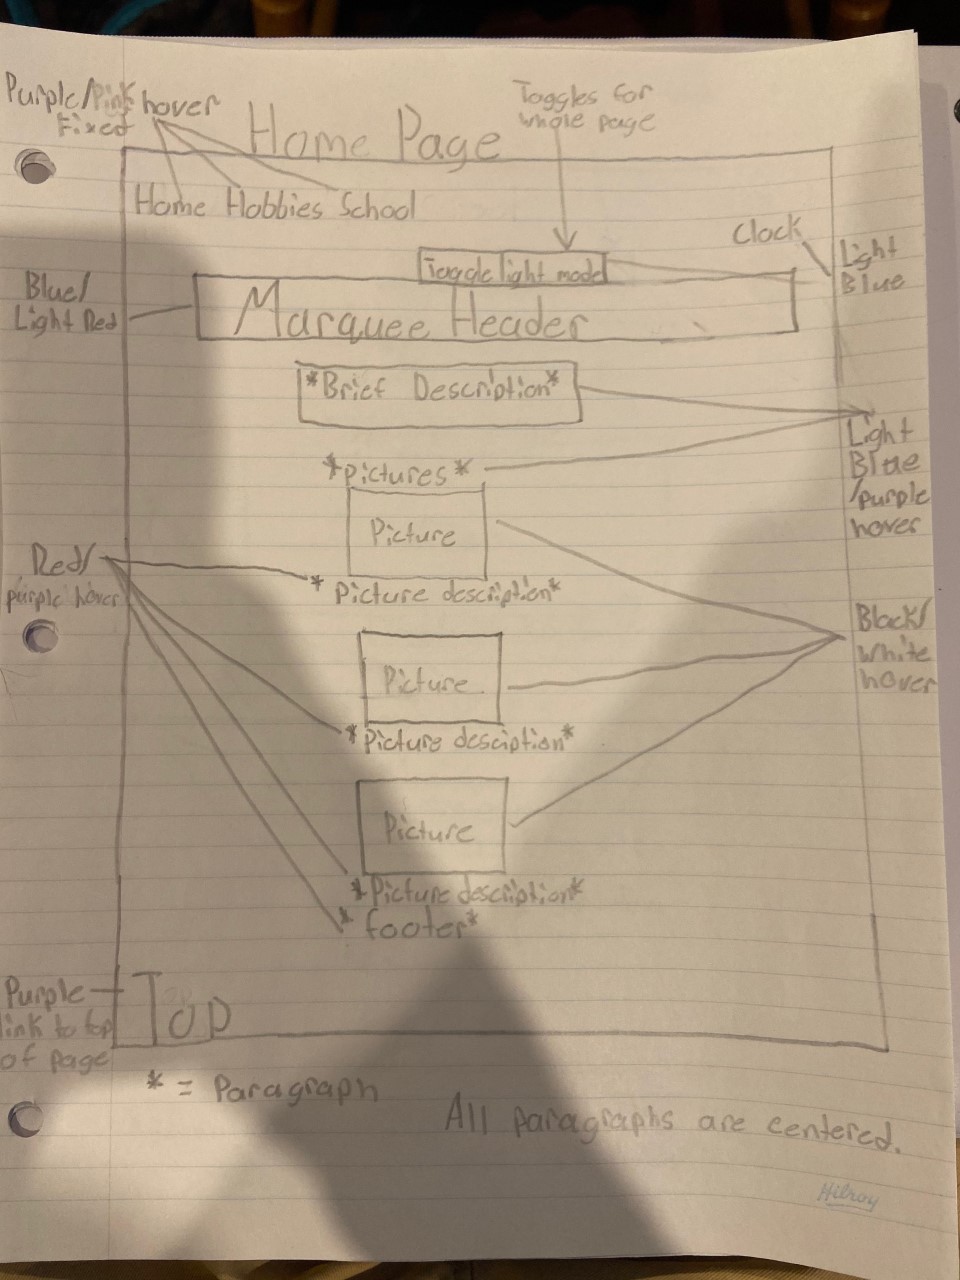 Purple/Pink hover
Fixed
Home Page
Toggles for
whole page
Home Hobbies School
Clock
Light
Blue
Toggle light mode
Blue/
Light Red
Marquee Header
*Brief Description*
Light
Blue
/purple
hover
*Pictures*
Picture
Red/
purple hover
* Picture description*
Black/
white
hover
Picture
*Picture desciption*
Picture
*Picture description*
* footer*
Purple
link to top
of page
Top
* = Paragraph
All paragraphs are centered.
Hilroy